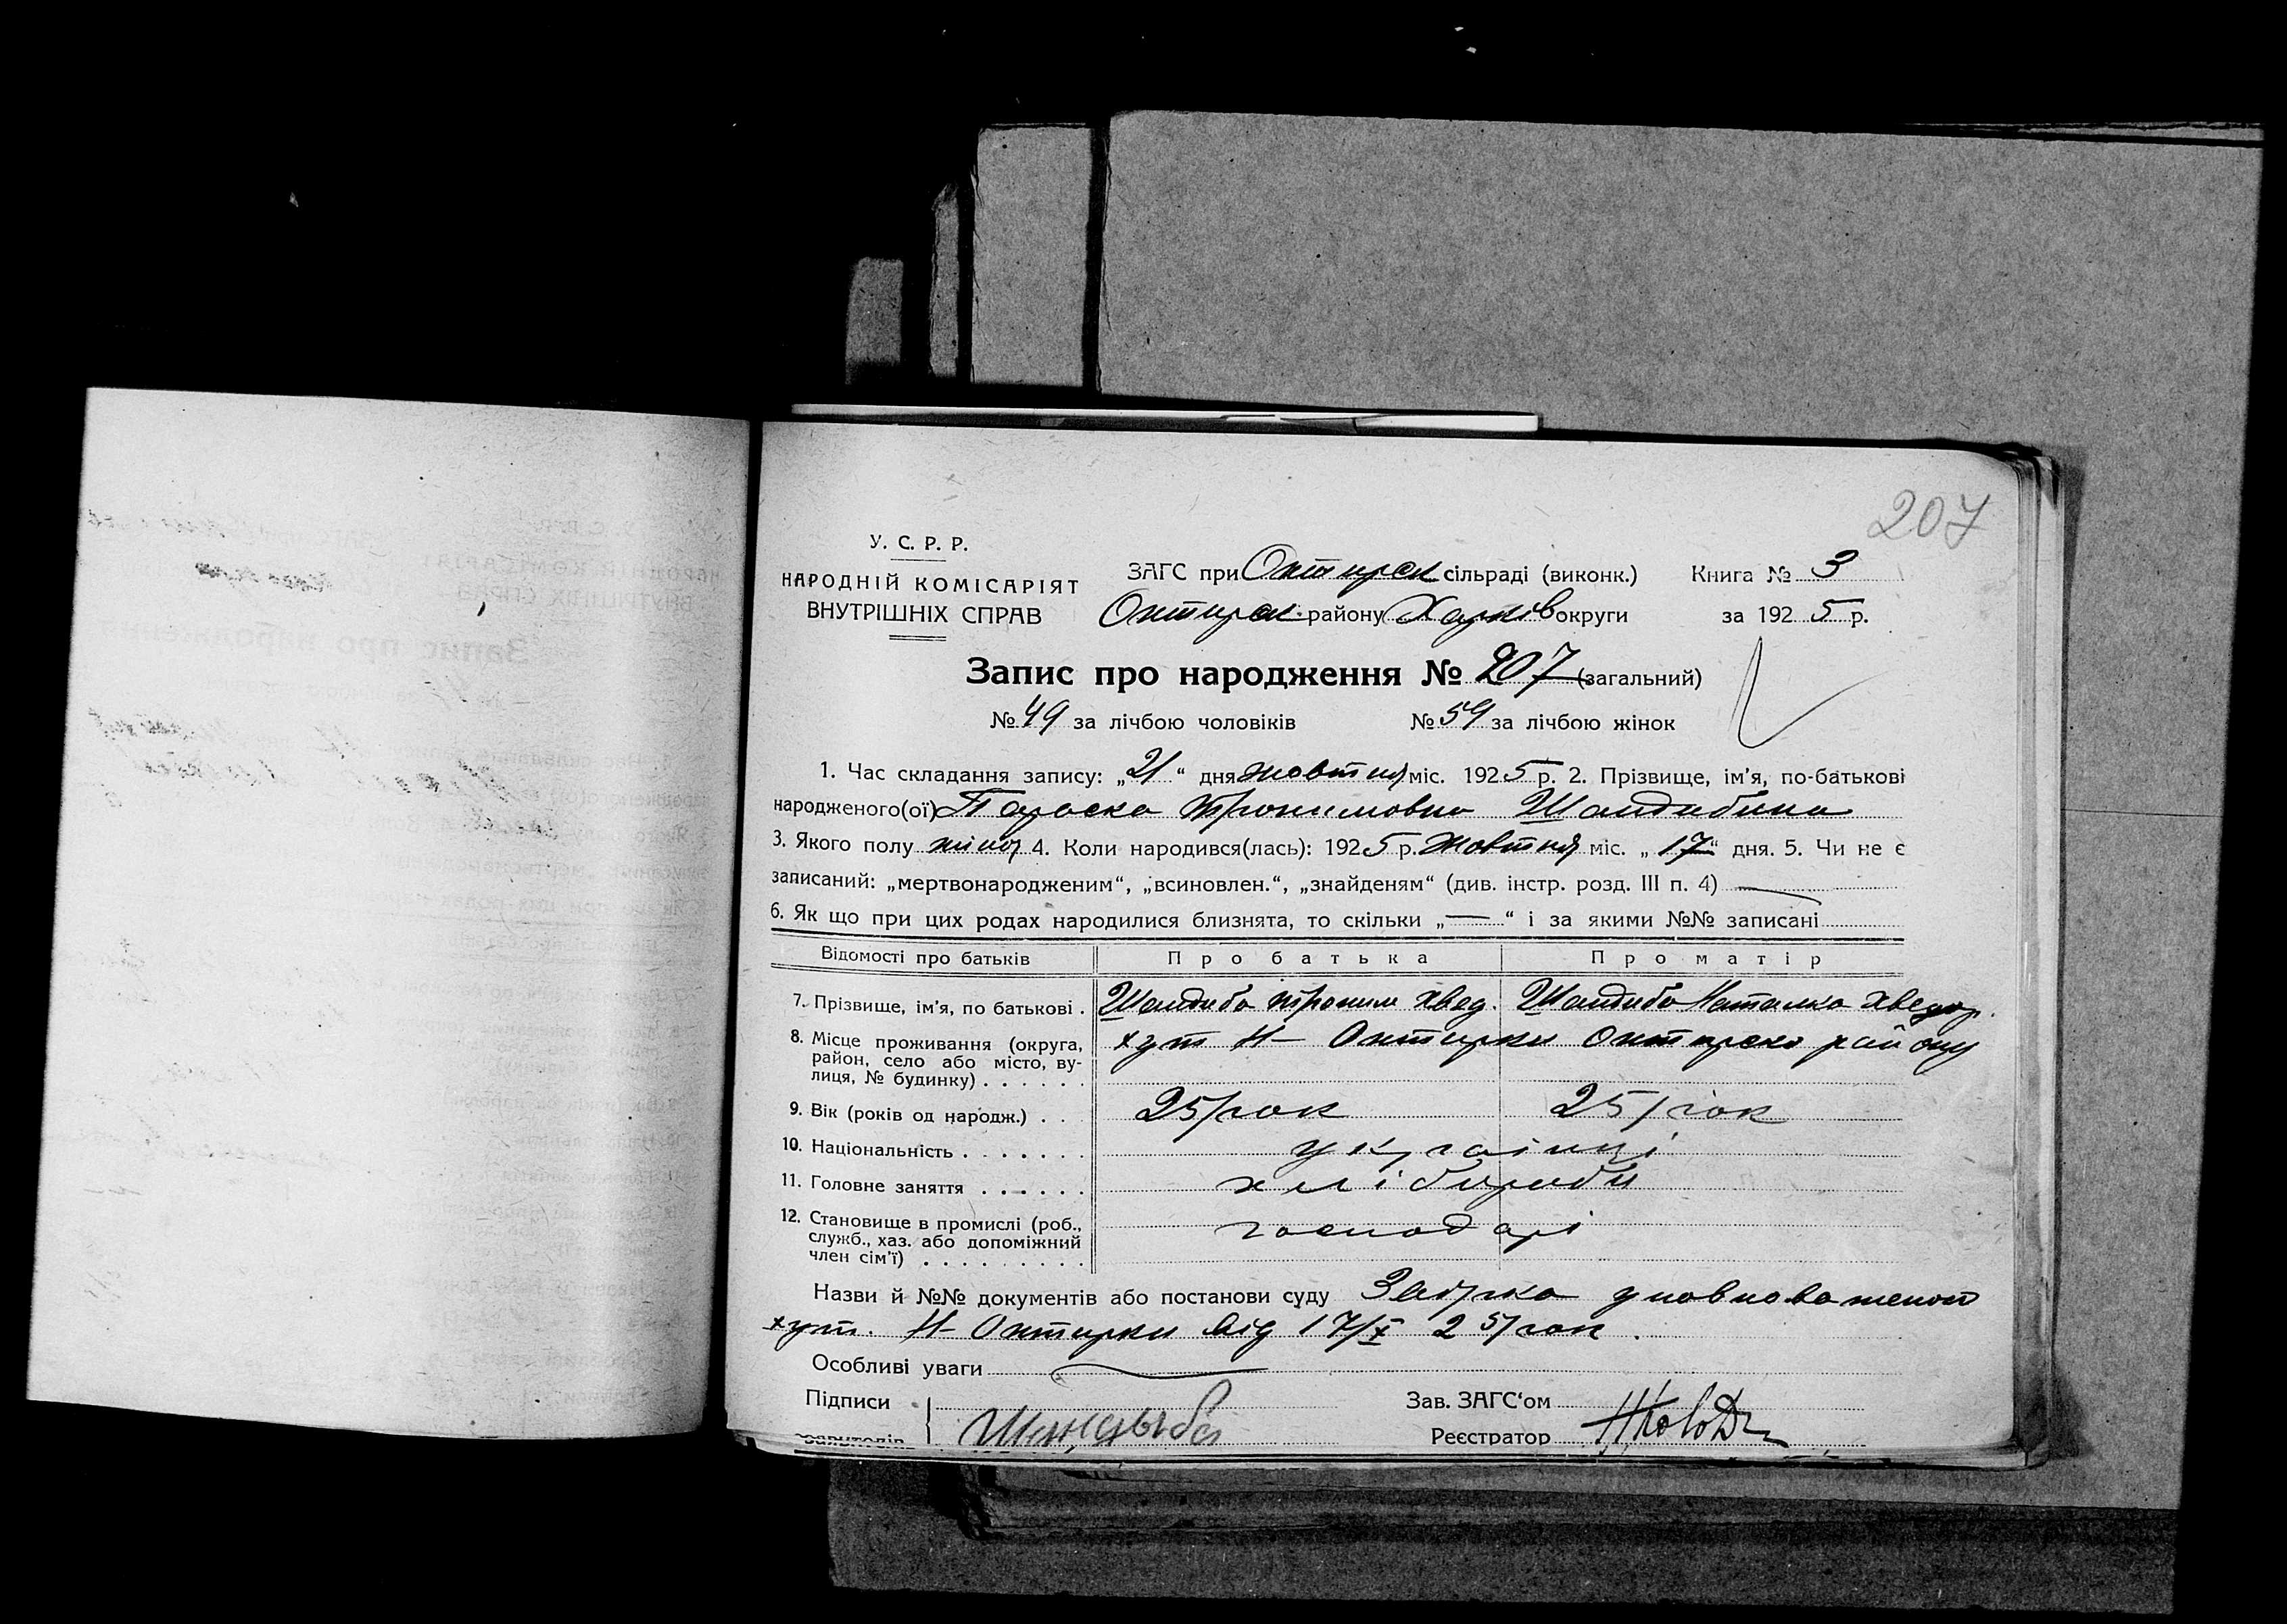 207
У. С. Р. Р.
НАРОДНІЙ КОМІСАРІЯТ
ВНУТРІШНІХ СПРАВ
ЗАГС при Охтирск сільраді (виконк.) Книга № 3
Охтирск. району Харків округи за 1925 р.
Запис про народження № 207 (загальний)
№ 49 за лічбою чоловіків № 59 за лічбою жінок
1. Час складання запису: „21“ дня жовтня міс. 1925 р. 2. Прізвище, ім’я, по-батькові
народженого(ої) Параска Трохимовна Шандибина
3. Якого полу жіноч 4. Коли народився(лась): 1925 р. Жовтня міс. „17“ дня. 5. Чи не є
записаний: „мертвонародженим“, „всиновлен.“, „знайденям“ (див. інстр. розд. III п. 4) —
6. Як що при цих родах народилися близнята, то скільки „—“ і за якими №№ записані
Відомості про батьків Про батька Про матір
7. Прізвище, ім’я, по батькові . Шандиба Трохим Хвед. Шандиба Наталка Хведор.
8. Місце проживання (округа, район, село або місто, ву-лиця, № будинку) . . . . . . хут Н- Охтирки Охтирско району
9. Вік (років од народж.) . . 25/рок 25/рок
10. Національність . . . . . . . українці
11. Головне заняття . . . . . . хлібороби
12. Становище в промислі (роб., служб., хаз. або допоміжний член сім’ї) . . . . . . . . . господарі
Назви й №№ документів або постанови суду Звірка уповноваженого
хут. Н- Охтирки від 17/X 25/рок.
Особливі уваги —
Підписи Зав. ЗАГС‘ом
Шандыба Реєстратор